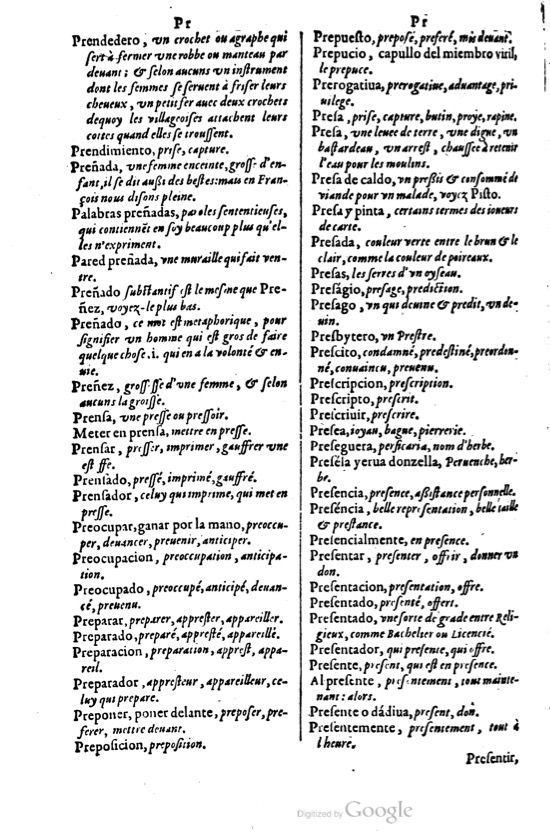 Pr
Prendedero, vn crochet ou agraphe qui
sert à fermer vne robbe ou manteau par
deuant; & selon aucuns vn instrument
dont les femmes se seruent à friser leurs
cheueux, vn petit fer auec deux crochets
dequoy les villageoises attachent leurs
cottes quand elles se troussent.
Prendimiento, prise, capture.
Preñada, vne femme enceinte, grosse d'en-
fant, il se dit aussi des bestes: mais en Fran-
çois nous disons pleine.
Palabras preñadas, paroles sententieuses,
qui contiennẽt en soy beaucoup plus qu'el-
les n'expriment.
Pared preñada, vne muraille qui fait ven-
tre.
Preñado substantif est le mesme que Pre-
ñez, voyez-le plus bas.
Preñado, ce mot est metaphorique, pour
signifier vn homme qui est gros de faire
quelque chose .i. qui en a la volonté & en-
uie.
Preñez, grossesse d'vne femme, & selon
aucuns la groisse.
Prensa, vne presse ou pressoir.
Meter en prensa, mettre en presse.
Prensar, presser, imprimer, gauffrer vne
estoffe.
Prensado, pressé, imprimé, gauffré.
Prensador, celuy qui imprime, qui met en
presse.
Preocupar, ganar por la mano, preoccu-
per, deuancer, preuenir, anticiper.
Preocupacion, preoccupation, anticipa-
tion.
Preocupado, preoccupé, anticipé, deuan-
cé, preuenu.
Preparar, preparer, apprester, appareiller.
Preparado, preparé, appresté, appareillé.
Preparacion, preparation, apprest, appa-
reil.
Preparador, appresteur, appareilleur, ce-
luy qui prepare.
Preponer, poner delante, preposer, pre-
ferer, mettre deuant.
Preposicion, preposition.
Pr
Prepuesto, preposé, preferé, mis deuant.
Prepucio, capullo del miembro viril,
le prepuce.
Prerogatiua, prerogatiue, aduantage, pri-
uilege.
Presa, prise, capture, butin, proye, rapine.
Presa, vne leuee de terre, vne digue, vn
bastardeau, vn arrest, chaussee à retenir
l'eau pour les moulins.
Presa de caldo, vn pressis & consommé de
viande pour vn malade, voyez Pisto.
Presa y pinta, certains termes des ioueurs
de carte.
Presada, couleur verte entre le brun & le
clair, comme la couleur de poireaux.
Presas, les serres d'vn oyseau.
Preságio, presage, prediction.
Presago, vn qui deuine & predit, vn de-
uin.
Presbytero, vn Prestre.
Prescito, condamné, predestiné, preordon-
né, conuaincu, preuenu.
Prescripcion, prescription.
Prescripto, prescrit.
Prescriuir, prescrire.
Presea, ioyau, bague, pierrerie.
Preseguera, persicaria, nom d'herbe.
Preséla yerua donzella, Peruenche, her-
be.
Presencia, presence, assistance personnelle.
Preséncia, belle representation, belle taille
& prestance.
Presencialmente, en presence.
Presentar, presenter, offrir, donner vn
don.
Presentacion, presentation, offre.
Presentado, presenté, offert.
Presentado, vne sorte de grade entre Reli-
gieux, comme Bachelier ou Licencié.
Presentador, qui presente, qui offre.
Presente, present, qui est en presence.
Al presente, presentement, tout mainte-
nant: alors.
Presente o dádiua, present, don.
Presentemente, presentement, tout à
l'heure.
Presentir,
Digitized by Google